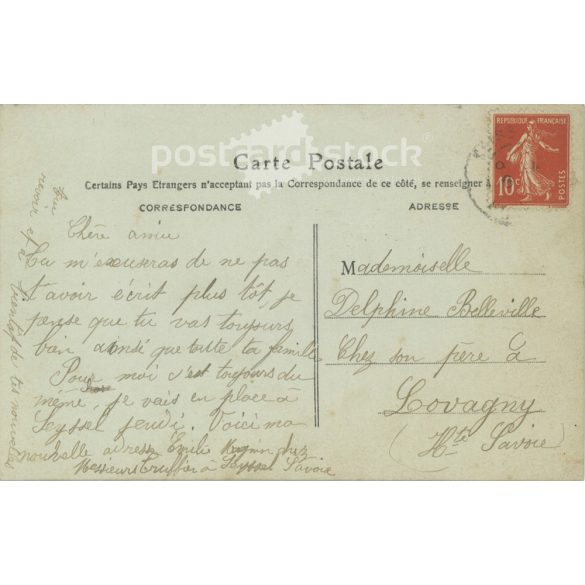 postcardstock
Carte Postale
Certains Pays Etrangers n'acceptant pas la Correspondance de ce côté, se renseigner à
CORRESPONDANCE
ADRESSE
REPUBLIQUE FRANÇAISE
10c
POSTES
Chère amie
Tu m'excuseras de ne pas
t'avoir écrit plus tôt je
pense que tu vas toujours
bien ainsi que toute ta famille
Pour moi c'est toujours du
même, je vais en place à
Seyssel jeudi. Voici ma
nouvelle adresse Emilie chez
Messieurs à Seyssel Savoie
revoir et à de tes nouvelles
Mademoiselle
Delphine Belleville
Chez son père à
Lovagny
(Hte Savoie)